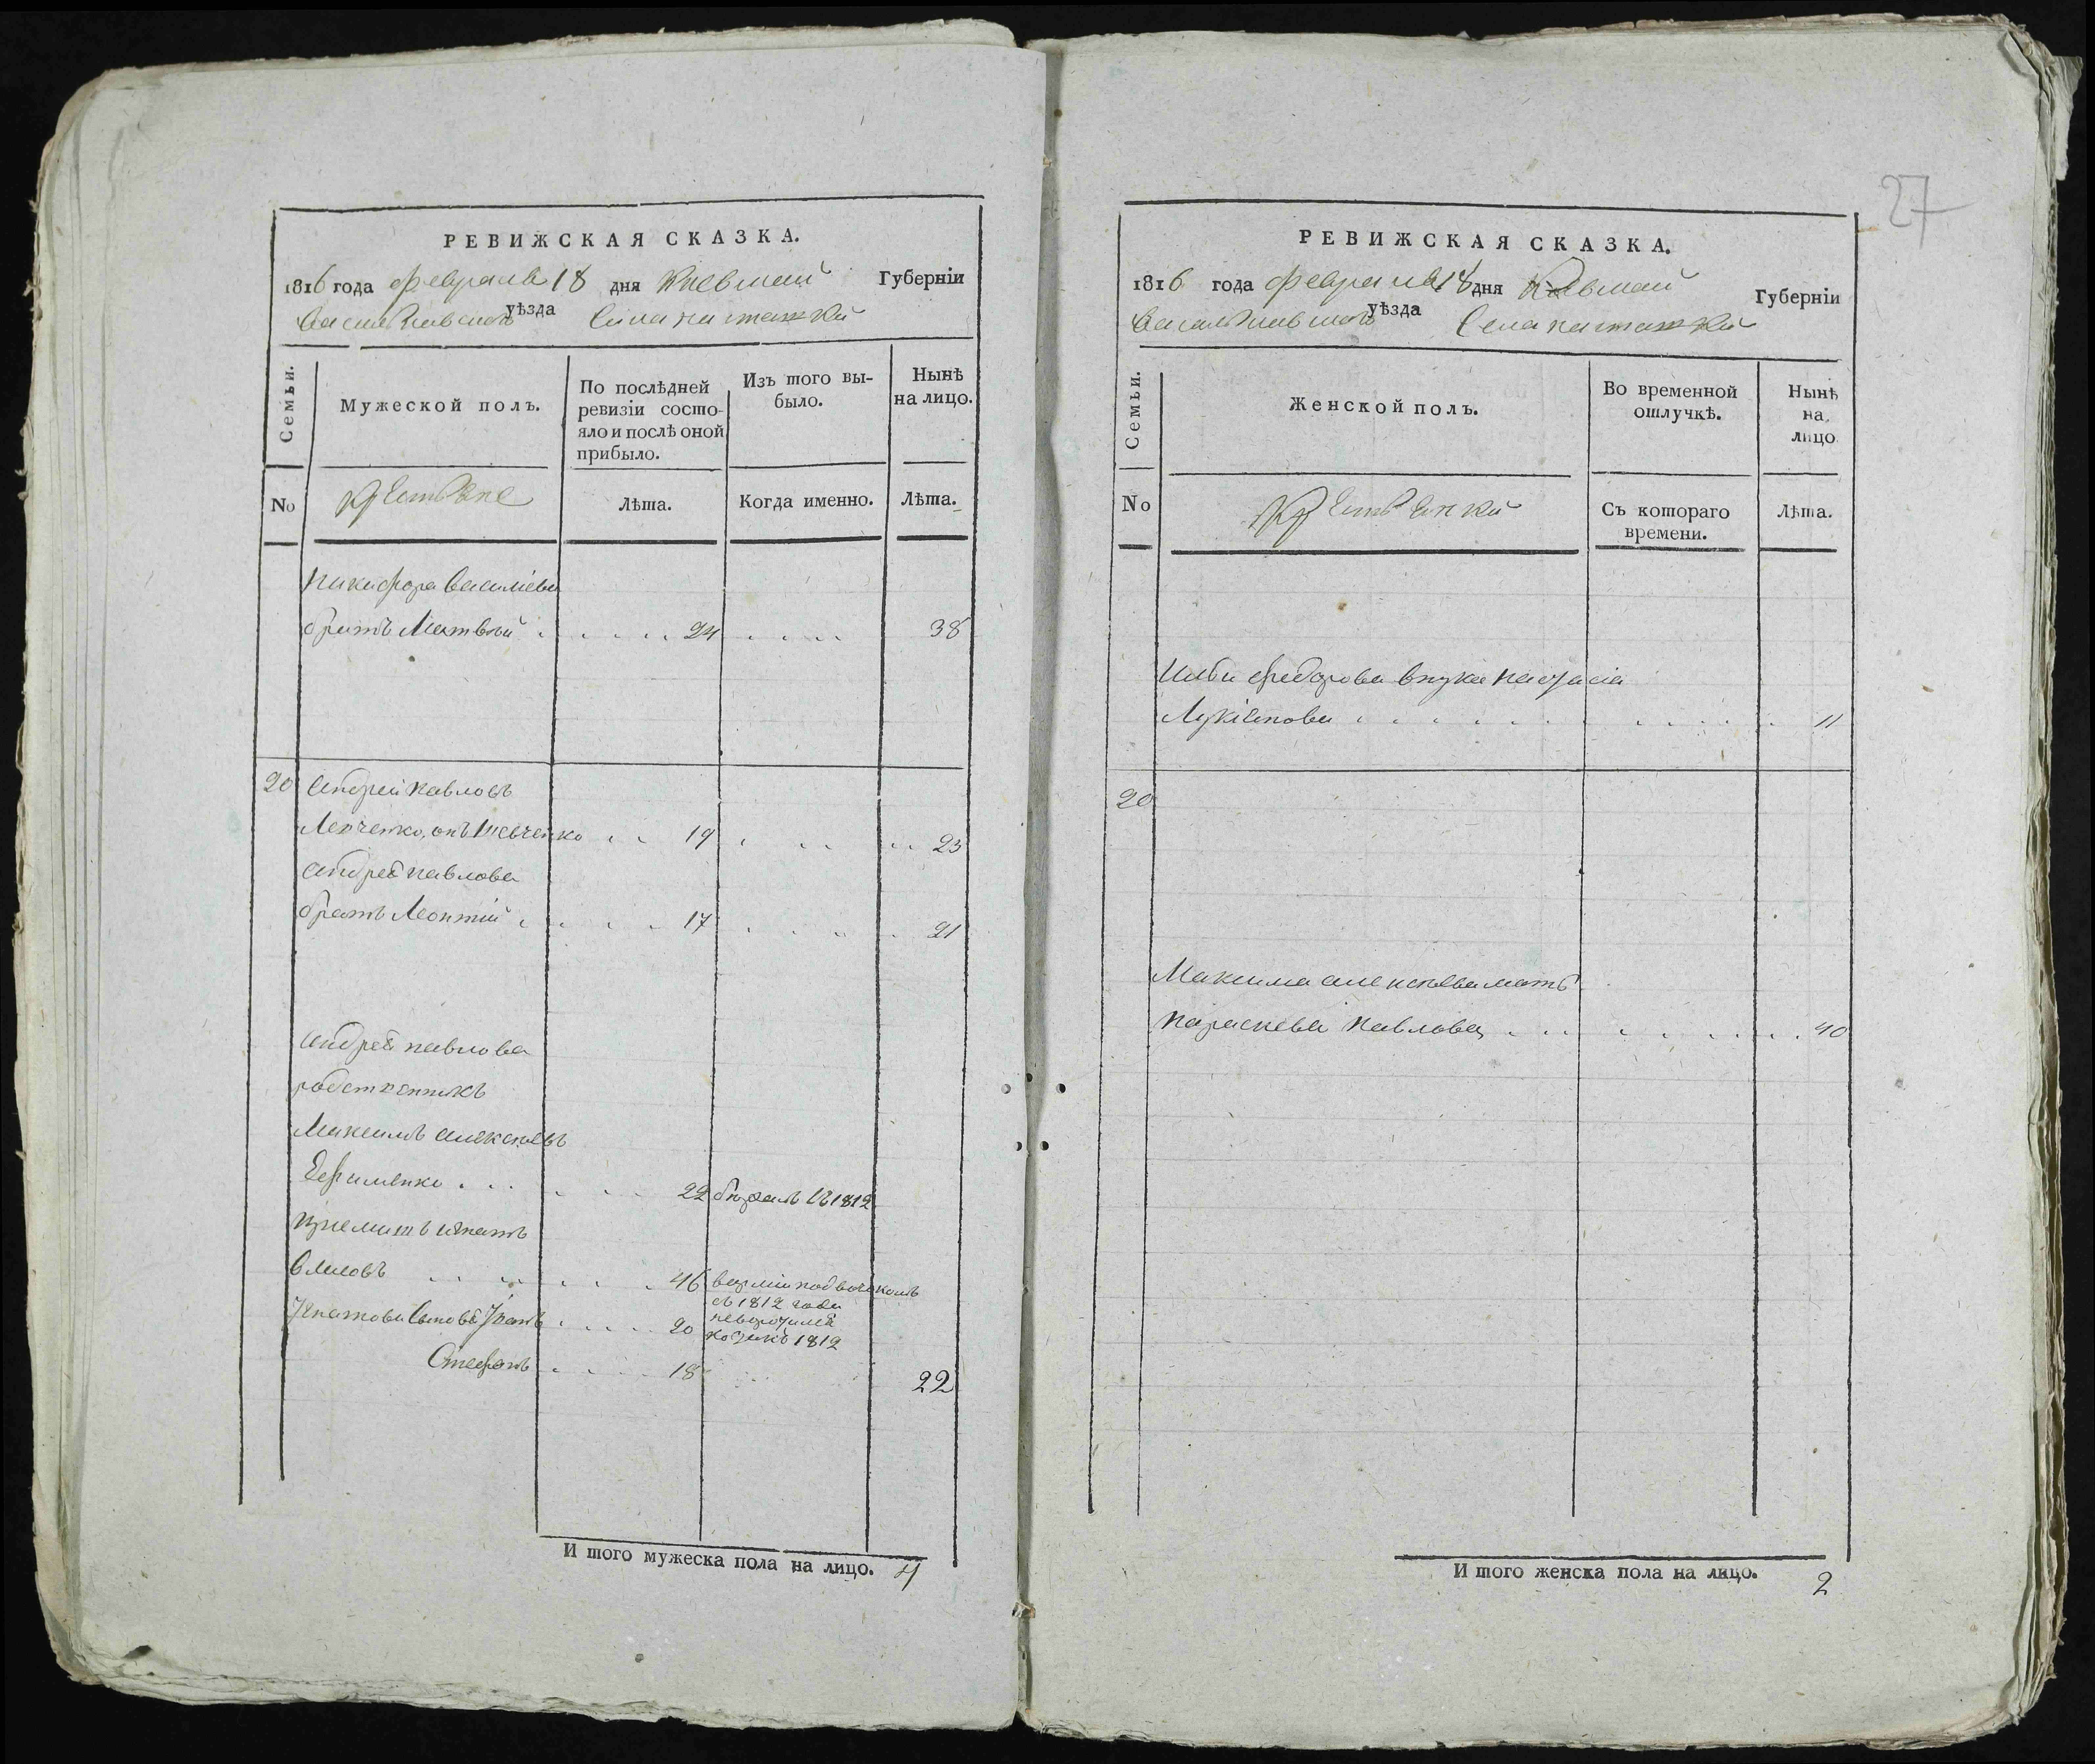 РЕВИЖСКАЯ СКАЗКА.
1816 года февраля 18 дня Киевской Губерніи
Васильковского уѣзда Села
Семьи.
Мужеской полъ.
По послѣдней ревизіи состо-
яло и послѣ оной прибыло.
Изъ того вы-
было.
Нынѣ
на лицо.
No
крестьяне
Лѣта.
Когда именно.
Лѣта.
Никифора Василіева
братъ Матвѣй 24 38
20 Андрей Павловъ
онъ Шевченко 19 23
Андрея Павлова
братъ Леонтій 17 21
Андрея Павлова
родственникъ
Максимъ Алексѣевъ
Ефименко 22 1812
Игнатъ
46
съ 1812 года
Игнатова сынове 20
1812
Стефанъ 18 22
И того мужеска пола на лицо. 4
27
РЕВИЖСКАЯ СКАЗКА.
1816 года февраля 18 дня Киевской Губерніи
Васильковского уѣзда Села
Семьи.
Женской полъ.
Во временной
отлучкѣ.
Нынѣ
на
лицо
No
крестьянки
Съ котораго
времени.
Лѣта.
Федорова внука Настасія
Лукіянова 11
20
Максима Алексѣева мать
Параскева Павлова 40
И того женска пола на лицо. 2